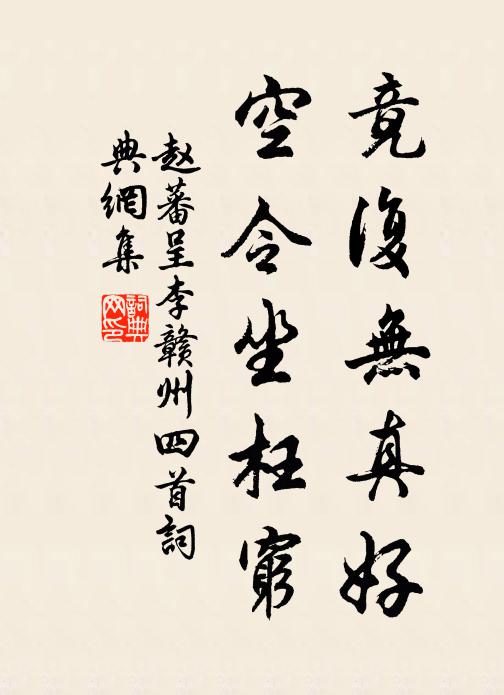 竟復無真好
空令坐枉窮
赵蕃呈李贛州四首詞
典網集
詞典
网印